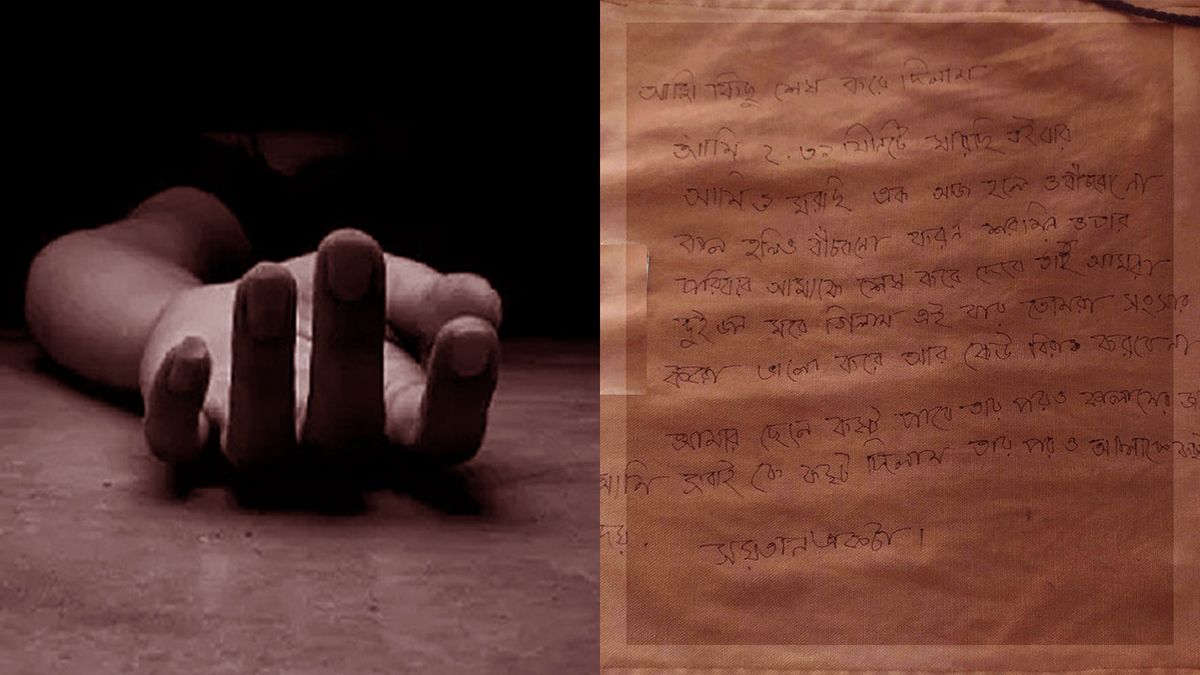 আমি কিছু শেষ করে দিলাম
আমি ২.৩০ মিনিটে মারছি এইবার
আমি ও মরছি এক আজ হলে ও বাঁচবো না
কাল হলিও বাঁচবোনা কারন শারমিন ও তার
পরিবার আমাকে শেষ করে দেবে তাই আমরা
দুই জন মরে গিলাম এই বার তোমরা সংসার
করো ভালো করে আর কেউ বিরক্ত করবেনা
আমার ছেলে কষ্ট পাবে তার পরও
আমি সবাই কে কষ্ট দিলাম তার পর ও
দেয়.
সয়তান একটা।